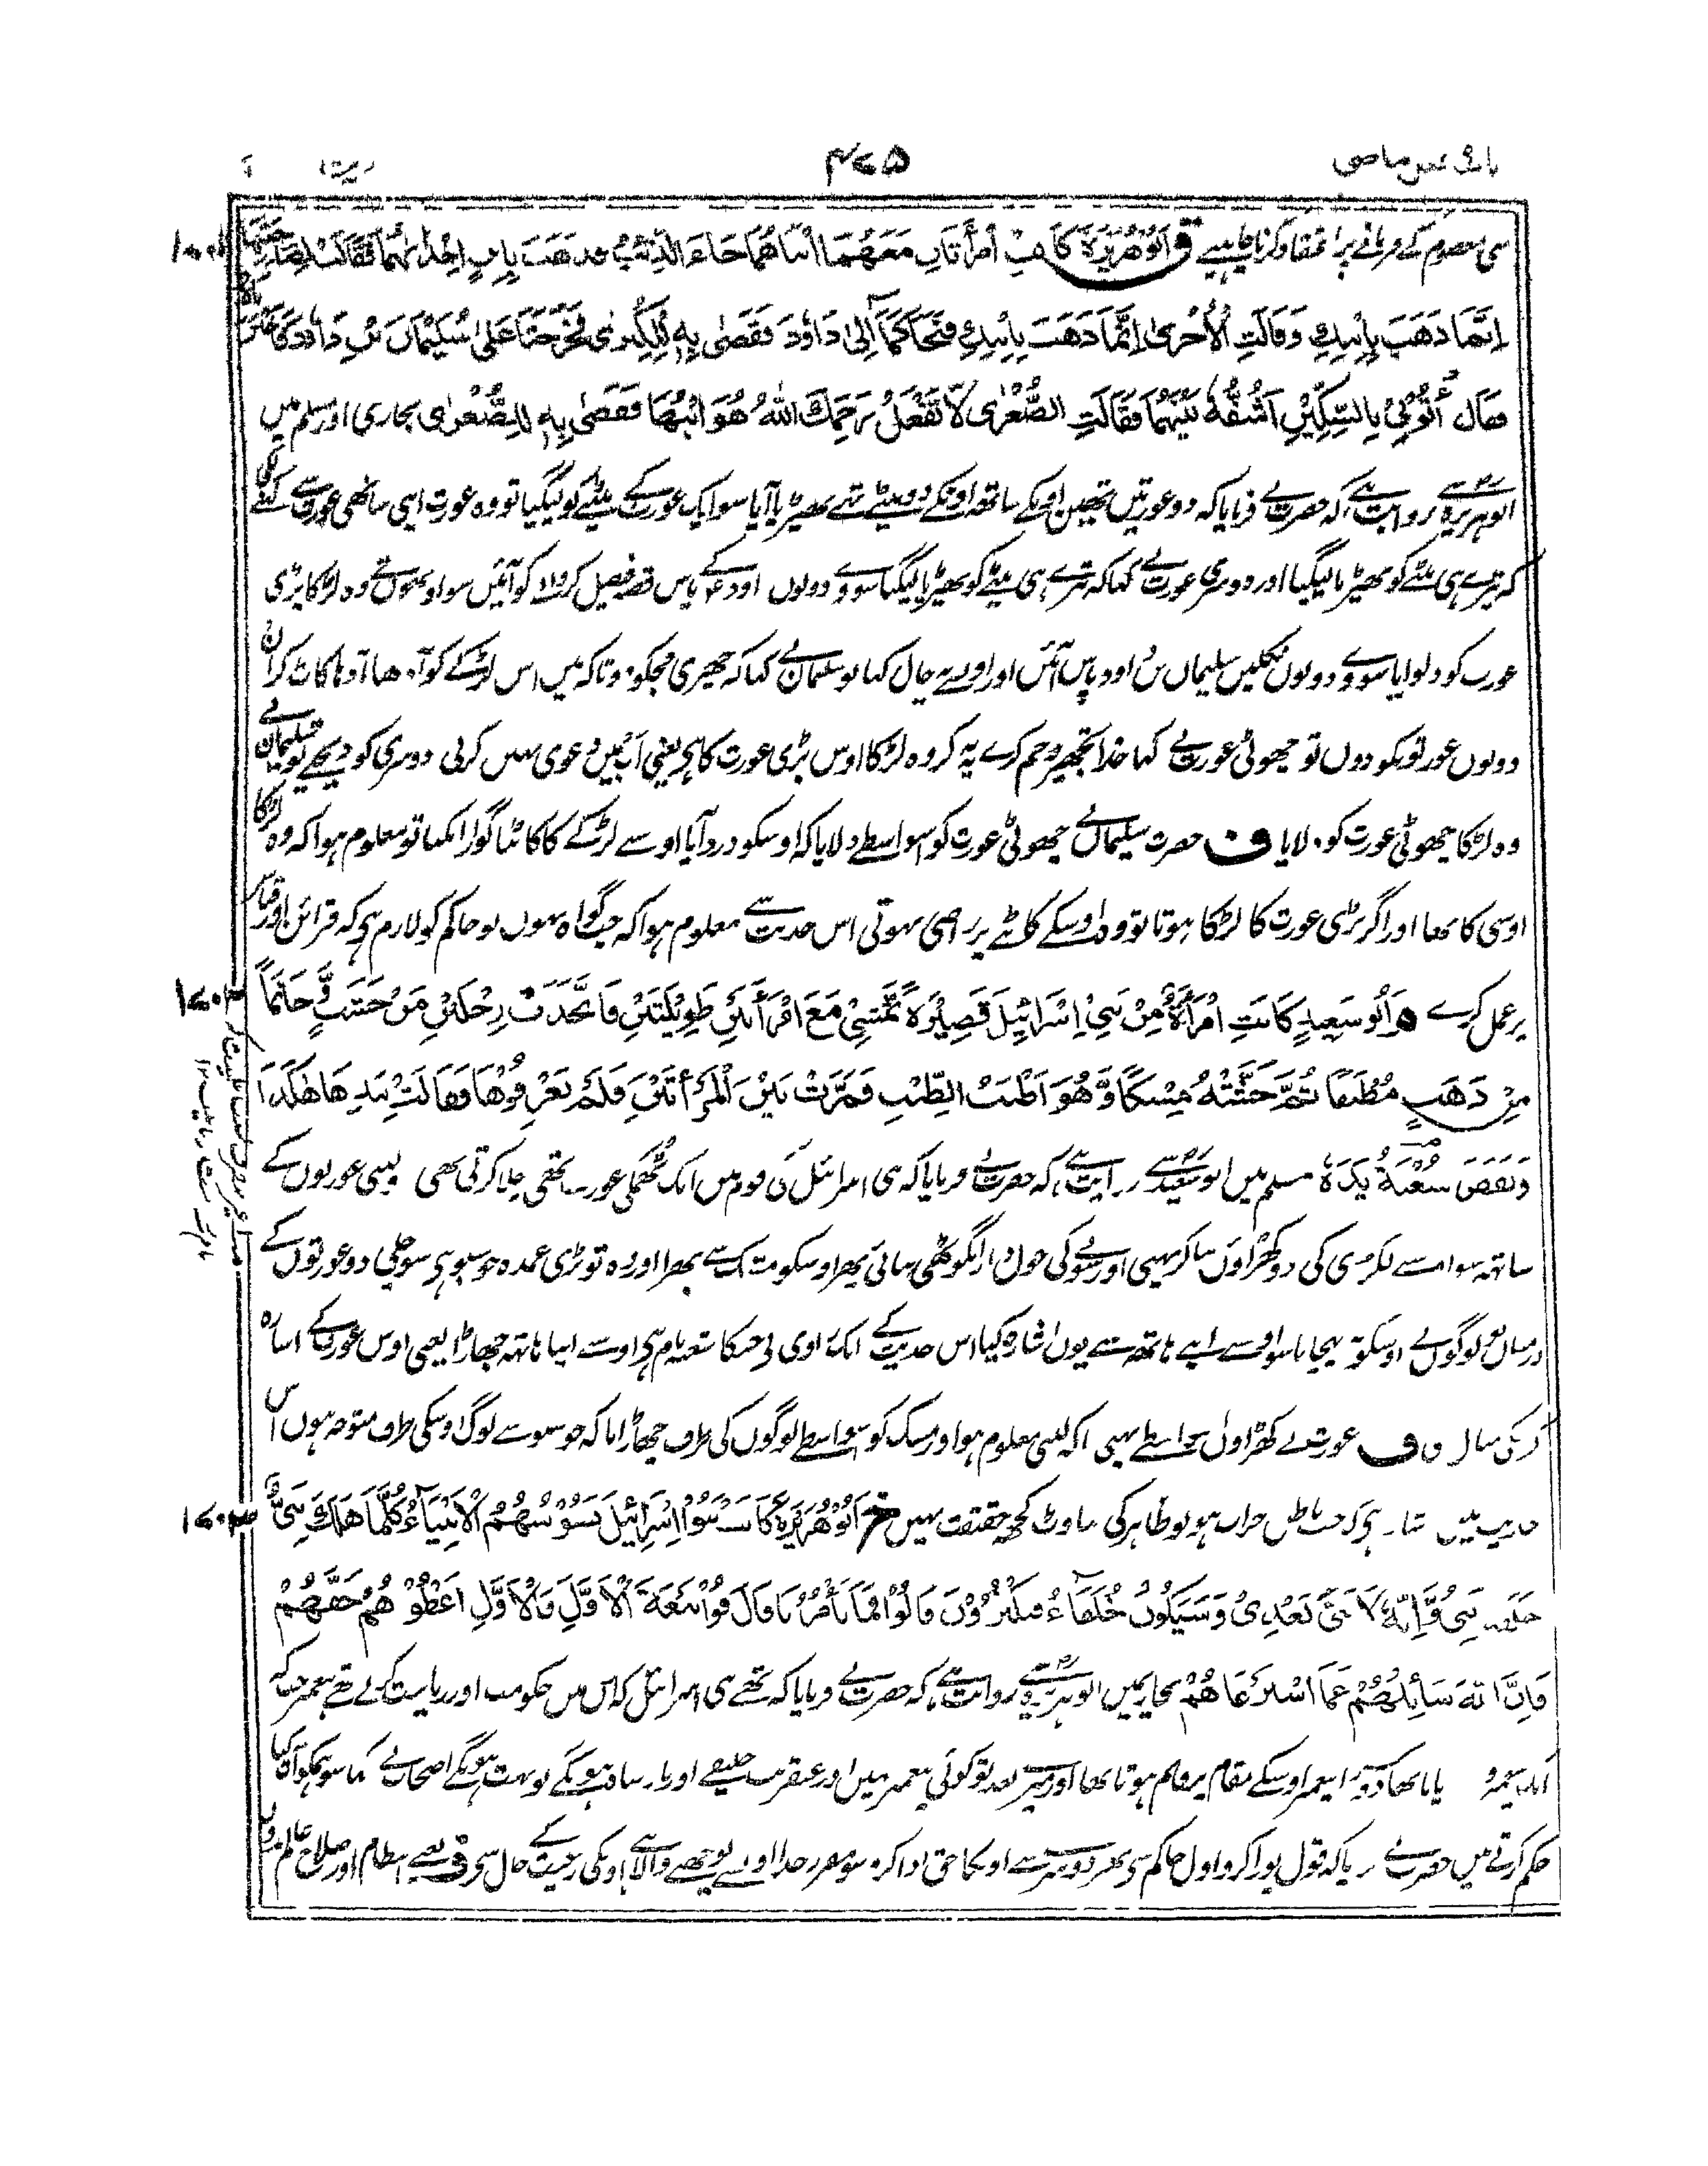 ۴۷۵
سی معصوم کے فرمانے پر اعتقاد کرنا چاہیے ق اَبُوْهُرَيْرَةَ كَانَتِ امْرَأَتَانِ مَعَهُمَا ابْنَاهُمَا جَاءَ الذِّئْبُ فَذَهَبَ بِابْنِ اِحْدٰىهُمَا فَقَالَتْ لِصَاحِبَتِهَا
اِنَّمَا ذَهَبَ بِابْنِكِ وَقَالَتِ الْاُخْرٰى اِنَّمَا ذَهَبَ بِابْنِكِ فَتَحَاكَمَا اِلٰى دَاوٗدَ فَقَضٰى بِهٖ لِلْكُبْرٰى فَخَرَجَتَا عَلٰى سُلَيْمَانَ بْنِ دَاوٗدَ فَاَخْبَرَتَاهُ
فَقَالَ ائْتُوْنِيْ بِالسِّكِّيْنِ اَشُقُّهُ بَيْنَهُمَا فَقَالَتِ الصُّغْرٰى لَا تَفْعَلْ يَرْحَمُكَ اللهُ هُوَ ابْنُهَا فَقَضٰى بِهٖ لِلصُّغْرٰى بخاری اور مسلم میں
ابوہریرہؓ سے روایت ہے کہ حضرت نے فرمایا کہ دو عورتیں تھیں اونکے ساتھ اونکے دو بیٹے تھے بھیڑیا آیا سو ایک عورت کے بیٹے کو لیگیا تو وہ عورت اپنی ساتھی عورت سے کہنے لگی
کہ تیرے ہی بیٹے کو بھیڑیا لیگیا اور دوسری عورت نے کہا کہ تیرے ہی بیٹے کو بھیڑیا لیگیا سو وے دونوں داود کے پاس قضیہ فیصل کروانے کو آئیں سو اونھوں نے وہ لڑکا بڑی
عورت کو دلوایا سو وے دونوں نکلیں سلیماں بن داود پاس آئیں اور اونسے یہ حال کہا تو سلیمان نے کہا کہ چھری مجکو دو تاکہ میں اس لڑکے کو آدھا آدھا کاٹ کر ان
دونوں عورتونکو دوں تو چھوٹی عورت نے کہا خدا تجھپر رحم کرے یہ نکر وہ لڑکا اوس بڑی عورت کا ہی یعنی اب میں دعوی نہیں کرتی دوسری کو دیجیے تو سلیمان نے
وہ لڑکا چھوٹی عورت کو دلایا ف حضرت سلیمان نے چھوٹی عورت کو اسواسطے دلایا کہ اوسکو درد آیا اوسے لڑکے کا کاٹنا گوارا نکیا تو معلوم ہوا کہ وہ لڑکا
اوسی کا تھا اور اگر بڑی عورت کا لڑکا ہوتا تو وہ اوسکے کاٹنے پر راضی نہوتی اس حدیث سے معلوم ہوا کہ جب گواہ نہوں تو حاکم کو لازم ہی کہ قرائن اور قیاس
پر عمل کرے م اَبُو سَعِيدٍ كَانَتِ امْرَأَةٌ مِنْ بَنِيْ اِسْرَائِيلَ قَصِيْرَةً تَمْشِيْ مَعَ امْرَأَتَيْنِ طَوِيْلَتَيْنِ فَاتَّخَذَتْ رِجْلَيْنِ مِنْ خَشَبٍ وَّخَاتَمًا
مِنْ ذَهَبٍ مُطْبَقًا ثُمَّ حَشَتْهُ مِسْكًا وَّهُوَ اَطْيَبُ الطِّيْبِ فَمَرَّتْ بَيْنَ الْمَرْأَتَيْنِ فَلَمْ يَعْرِفُوْهَا فَقَالَتْ بِيَدِهَا هٰكَذَا
وَنَفَضَ شُعْبَةُ يَدَهٗ مسلم میں ابو سعیدؓ سے روایت ہے کہ حضرت نے فرمایا کہ بنی اسرائیل کی قوم میں ایک ٹھگنی عورت تھی چلا کرتی تھی لنبی عورتوں کے
ساتھ سو اوسنے لکڑی کی دو کھڑاویں بنا کر پہنی اور سونے کی خول دار انگوٹھی بنائی پھر اوسکو مشک سے بھرا اور وہ تو بڑی عمدہ خوشبو ہی سو چلی دو عورتوں کے
درمیان تو لوگوں نے اوسکو نہ پہچانا سو اوسنے اپنے ہاتھ سے یوں اشارہ کیا اس حدیث کے ایک راوی نے جسکا شعبہ نام ہی اوسنے اپنا ہاتھ جھاڑا یعنی اوس عورت کے اشارہ
ف عورت نے کھڑاویں اسواسطے پہنی تاکہ لنبی معلوم ہو اور مسک کو اسواسطے لوگوں کی طرف جھاڑا تاکہ خوشبو سے لوگ اوسکی طرف متوجہ ہوں اس
حدیث میں ہو تو ظاہر کی بناوٹ کچھ حقیقت نہیں خ اَبُوْهُرَيْرَةَ كَانَتْ بَنُوْا اِسْرَائِيْلَ تَسُوْسُهُمُ الْاَنْبِيَاءُ كُلَّمَا هَلَكَ نَبِيٌّ
خَلَفَهُ نَبِيٌّ وَّاِنَّهٗ لَا نَبِيَّ بَعْدِيْ وَسَيَكُوْنُ خُلَفَاءُ فَيَكْثُرُوْنَ قَالُوْا فَمَا تَأْمُرُنَا قَالَ فُوْا بَيْعَةَ الْاَوَّلِ فَالْاَوَّلِ اَعْطُوْهُمْ حَقَّهُمْ
فَاِنَّ اللهَ سَائِلُهُمْ عَمَّا اسْتَرْعَاهُمْ بخاری میں ابوہریرہؓ سے روایت ہے کہ حضرت نے فرمایا کہ تھے بنی اسرائیل کہ اس میں حکومت اور ریاست کرتے تھے پیغمبر جب کہ
دوسرا پیغمبر اوسکے مقام پر قائم ہوتا تھا اور میرے بعد تو کوئی پیغمبر نہیں اور عنقریب خلیفے ہونگے تو بہت ہونگے اصحاب نے کہا سو ہمکو آپ کیا
حکم کرتے ہیں حضرت نے فرمایا کہ قول پورا کرو اول حاکم سے پھر دوسرے سے اونکا حق ادا کرو سو مقرر خدا اونسے پوچھنے والا ہے اونکی رعیت کے حال سے ف یعنے انتظام اور صلاح عالم